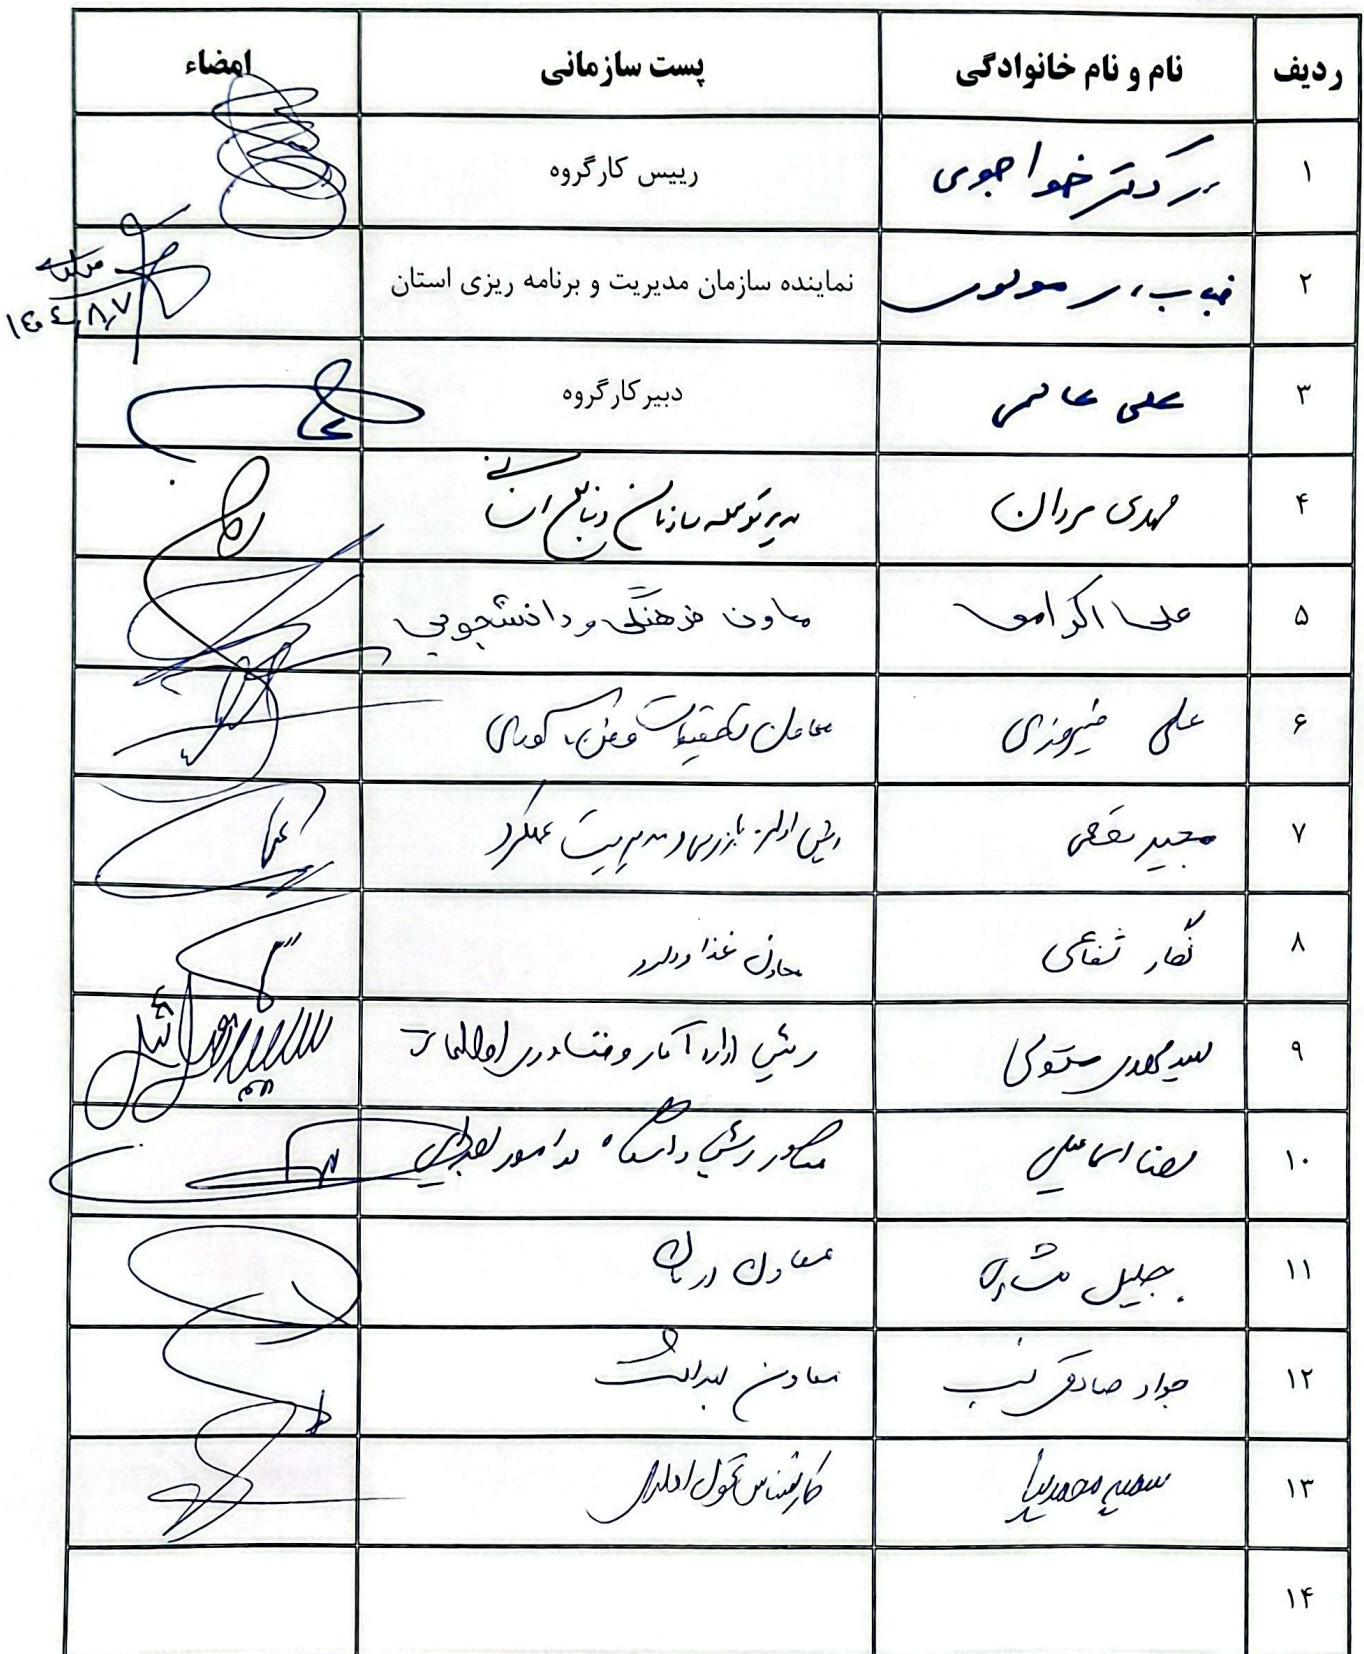 ردیف نام و نام خانوادگی پست سازمانی امضاء
۱ دکتر خواجوی رییس کارگروه
۲ موسوی نماینده سازمان مدیریت و برنامه ریزی استان
۱۴۰۴,۸,۷
۳ علی عالمی دبیر کارگروه
۴ مهدی مردان مدیر توسعه سازمان و منابع انسانی
۵ علی اکرامی معاون فرهنگی و دانشجویی
۶ علی فیروزی معاون تحقیقات و فن آوری
۷ مجید رییس اداره بازرسی و مدیریت عملکرد
۸ نگار شفاعی معاون غذا و دارو
۹ سید مهدی رئیس اداره آمار و فناوری اطلاعات
۱۰ رضا اسماعیلی مشاور رئیس دانشگاه در امور
۱۱ جلیل معاون درمان
۱۲ جواد صادقی نسب معاون بهداشت
۱۳ سمیه محمدنیا کارشناس تحول اداری
۱۴